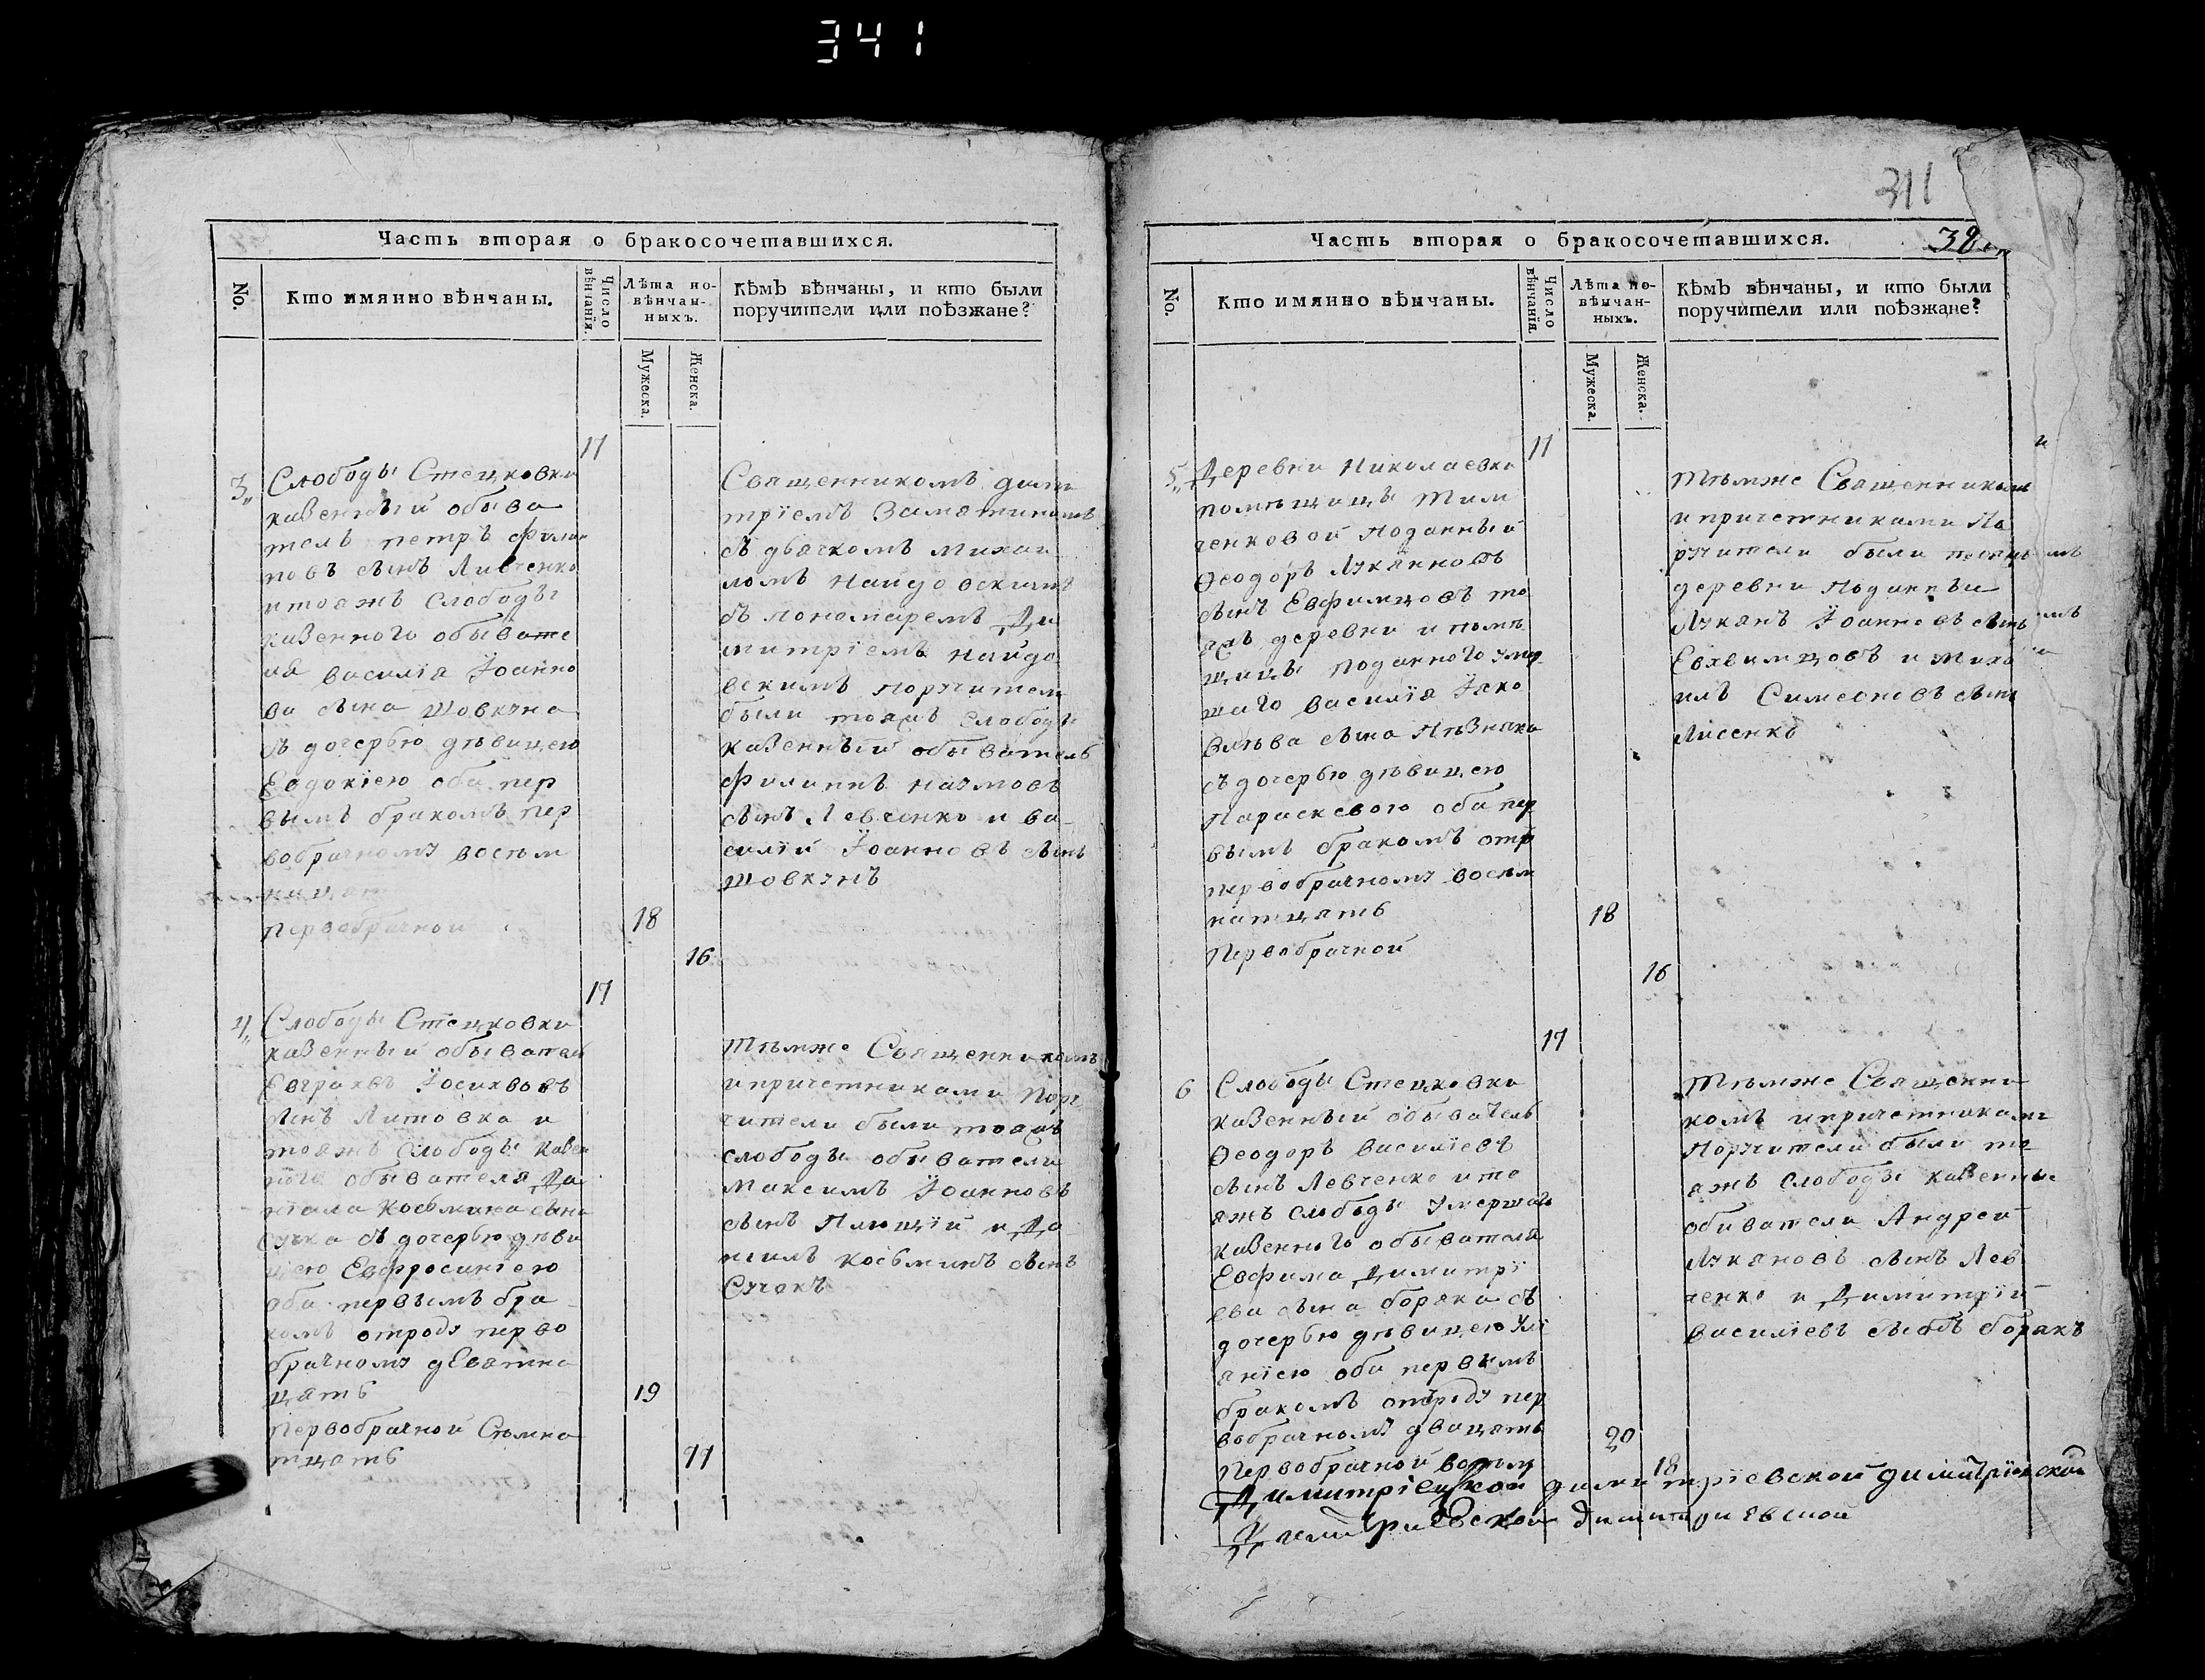 341
Часть вторая о бракосочетавшихся.
No.
Кто имянно вѣнчаны.
Число вѣнчанія.
Лѣта но-
вѣнчан-
ныхъ.
Мужеска.
Женска.
кѣмъ вѣнчаны, и кто были
поручители или поѣзжане?
17
3„
Слободы Стецковки
казенный обыва
тель петръ филип
повъ сынъ Ливченко
итояжъ Слободы
казенного обывате
ля василія Іоанно
ва сына Шовкуна
съ дочерью дѣвицею
Евдокіею оба пер
вымъ бракомъ пер
вобрачному восѣм
нацат
Первобрачной
18
16
Священникомъ дими
тріемъ Замятнинымъ
съ дьячкомъ михаи
ломъ Найдовскимъ
съ пономаремъ Ди
митріемъ Найдо
вскимъ Поручители
были тояжъ Слободы
казенный обыватель
Филиппъ наумовъ
сынъ Левченко и ва-
силій Іоанновъ сынъ
шовкунъ
17
4„
Слободы Стецковки
казенный обыватель
Евграхвъ Іосихвовъ
сынъ Литовка и
тояжъ Слободы казен
ного обывателя Да
ніила Косьмина сына
Сучка съ дочерью дѣви
цею Евфросиніею
оба первымъ бра
комъ отроду перво
брачному дЕвятна
цать
19
Первобрачной Сѣмна
тцать
17
Тѣмже Священникомъ
ипричетниками Пору
чители были тояжъ
слободы обыватели
Максимъ Іоанновъ
сынъ Плющій и Да
ніилъ Косьминъ сынъ
Сучокъ
311
Часть вторая о бракосочетавшихся.
38
No.
Кто имянно вѣнчаны.
Число вѣнчанія.
Лѣта но-
вѣнчан-
ныхъ.
Мужеска.
Женска.
кѣмъ вѣнчаны, и кто были
поручители или поѣзжане?
11
5„
Деревни Николаевки
помѣщицы Тим
ченковой Поданный
Ѳеодоръ Лукяновъ
сынъ Евфимцовъ то
яжъ деревни и помѣ
щицы Поданного умер
шаго василія Яко
влѣва сына Пѣзняка
съ дочерью дѣвицею
Параскевою оба пер
вымъ бракомъ отр
первобрачному восѣм
натцять
18
Первобрачной
16
Тѣмже Священникомъ
ипричетниками По
ручители были тояжъ
деревни Поданныи
Лукянъ Іоанновъ сынъ
Евхвимцовъ и Миха
илъ Симеоновъ сынъ
Лисенко
17
6
Слободы Стецковки
казенный обыватель
Ѳеодоръ Василіевъ
сынъ Левченко ито
яжъ слободы Умершаго
казенного обывателя
Евфима Димитрі
ева сына боряка съ
дочерью дѣвицею Улі
яніею оба первымъ
бракомъ отроду пер
вобрачному двацать
20
Первобрачной восѣм
18
Тѣмже Священни
комъ ипричетниками
Поручители были то
яжъ слободы казенные
обиватели Андрей
Лукяновъ сынъ Лев
ченко и Димитрій
Василіевъ сынъ борякъ
Димитріевской димитріевской димитріевской
Димитриевской